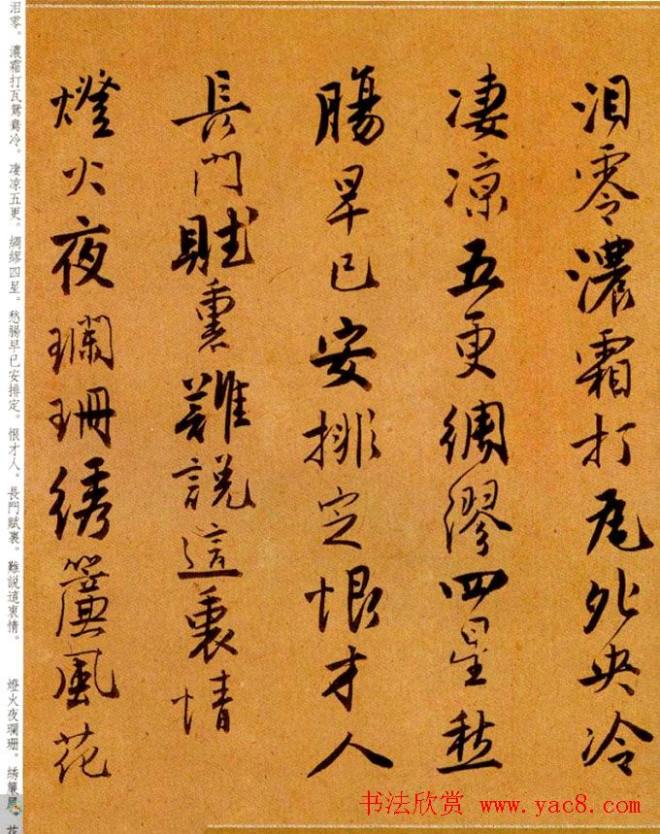 泪零濃霜打瓦鴛鴦冷
凄凉五更綢繆四星愁
腸早已安排定恨才人
長門賦裏難説這衷情
燈火夜瓓珊綉簾風花
泪零。濃霜打瓦鴛鴦冷。凄凉五更。綢繆四星。愁腸早已安排定。恨才人。長門賦裏。難説這衷情。 燈火夜瓓珊。綉簾風
书法欣赏 www.yac8.com